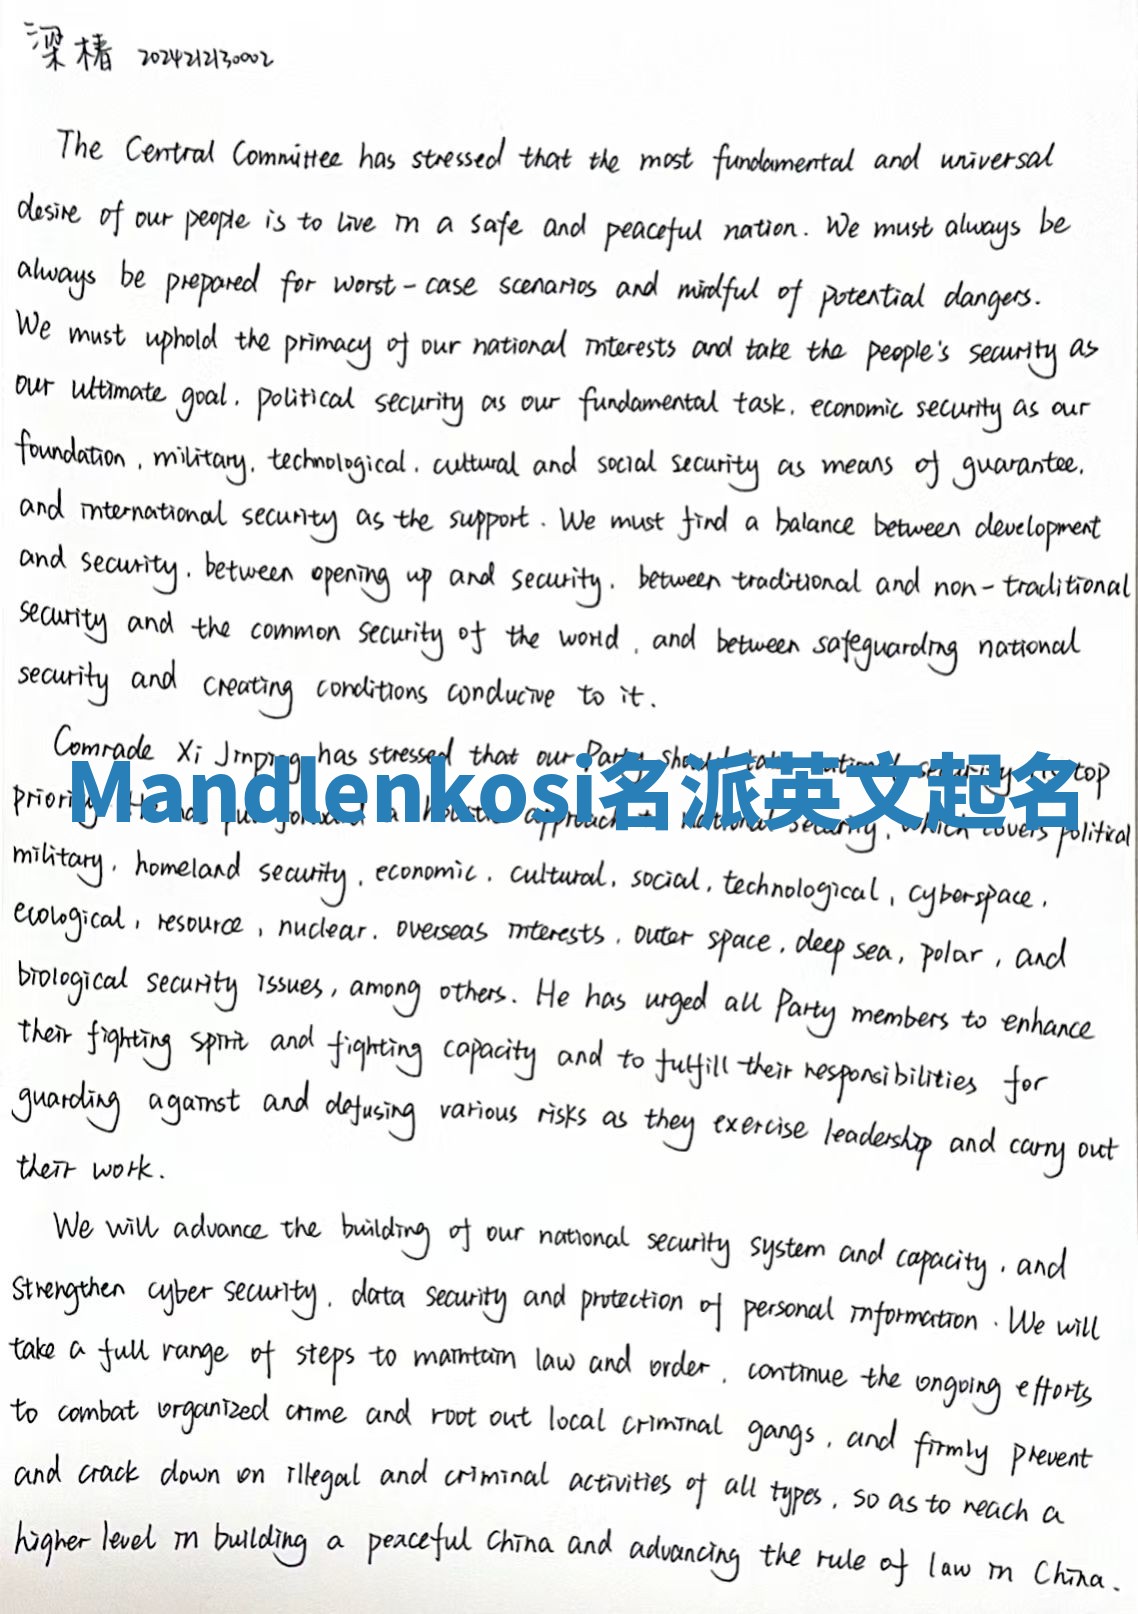 梁椿 2024212130002
The Central Committee has stressed that the most fundamental and universal
desire of our people is to live in a safe and peaceful nation. We must always be
always be prepared for worst-case scenarios and mindful of potential dangers.
We must uphold the primacy of our national interests and take the people's security as
our ultimate goal, political security as our fundamental task, economic security as our
foundation, military, technological, cultural and social security as means of guarantee,
and international security as the support. We must find a balance between development
and security, between opening up and security, between traditional and non-traditional
security and the common security of the world, and between safeguarding national
security and creating conditions conducive to it.
Comrade Xi Jinping has stressed that our Party should security top
Mandlenkosi名派英文起名
priority a approach national security, which covers political
military, homeland security, economic, cultural, social, technological, cyberspace,
ecological, resource, nuclear, overseas interests, outer space, deep sea, polar, and
biological security issues, among others. He has urged all Party members to enhance
their fighting spirit and fighting capacity and to fulfill their responsibilities for
guarding against and defusing various risks as they exercise leadership and carry out
their work.
We will advance the building of our national security system and capacity, and
strengthen cyber security, data security and protection of personal information. We will
take a full range of steps to maintain law and order, continue the ongoing efforts
to combat organized crime and root out local criminal gangs, and firmly prevent
and crack down on illegal and criminal activities of all types, so as to reach a
higher level in building a peaceful China and advancing the rule of law in China.